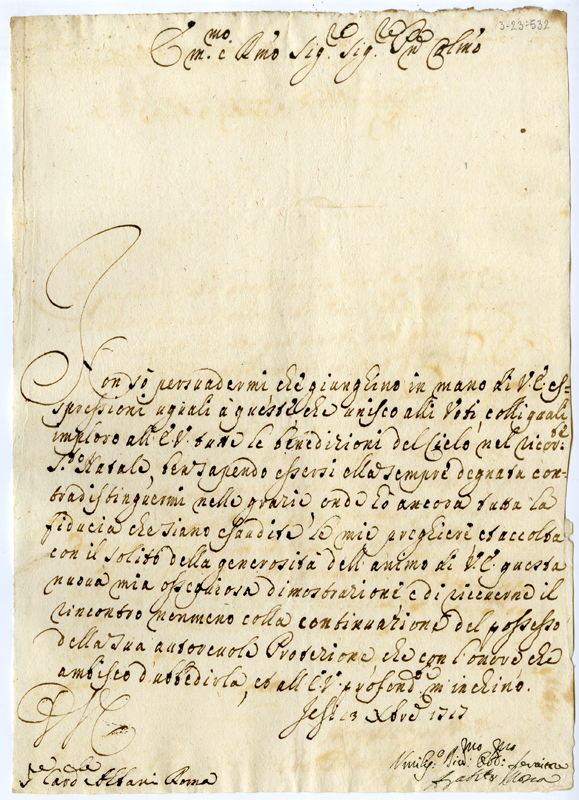 3-23-532
Em.mo e Rmo Sig.re Sig.re Pne Colmo
Non sò persuadermi che giunghino in mano di V.E. es=
pressioni uguali à queste, che unisco alli Voti, colli quali
imploro all'E.V. tutte le benedizioni del Cielo nel ricor:te
S.to Natale, ben sapendo essersi ella sempre degnata con-
tradistinguermi nelle grazie, onde hò ancora tutta la
fiducia che siano esaudite le mie preghiere et accolta
con il solito della generosità dell'animo di V.E. questa
nuova mia ossequiosa dimostrazione e di riceverne il
rincontro nonmeno colla continuazione del possesso
della sua autorevole Protezione, che con l'onore che
ambisco d'ubbedirla, et all'E.V. profond.e m'inchino.
Jesi 13 Xbre 1717
Card Albani Roma
Umilis.o Div.mo Obb.mo Servitore